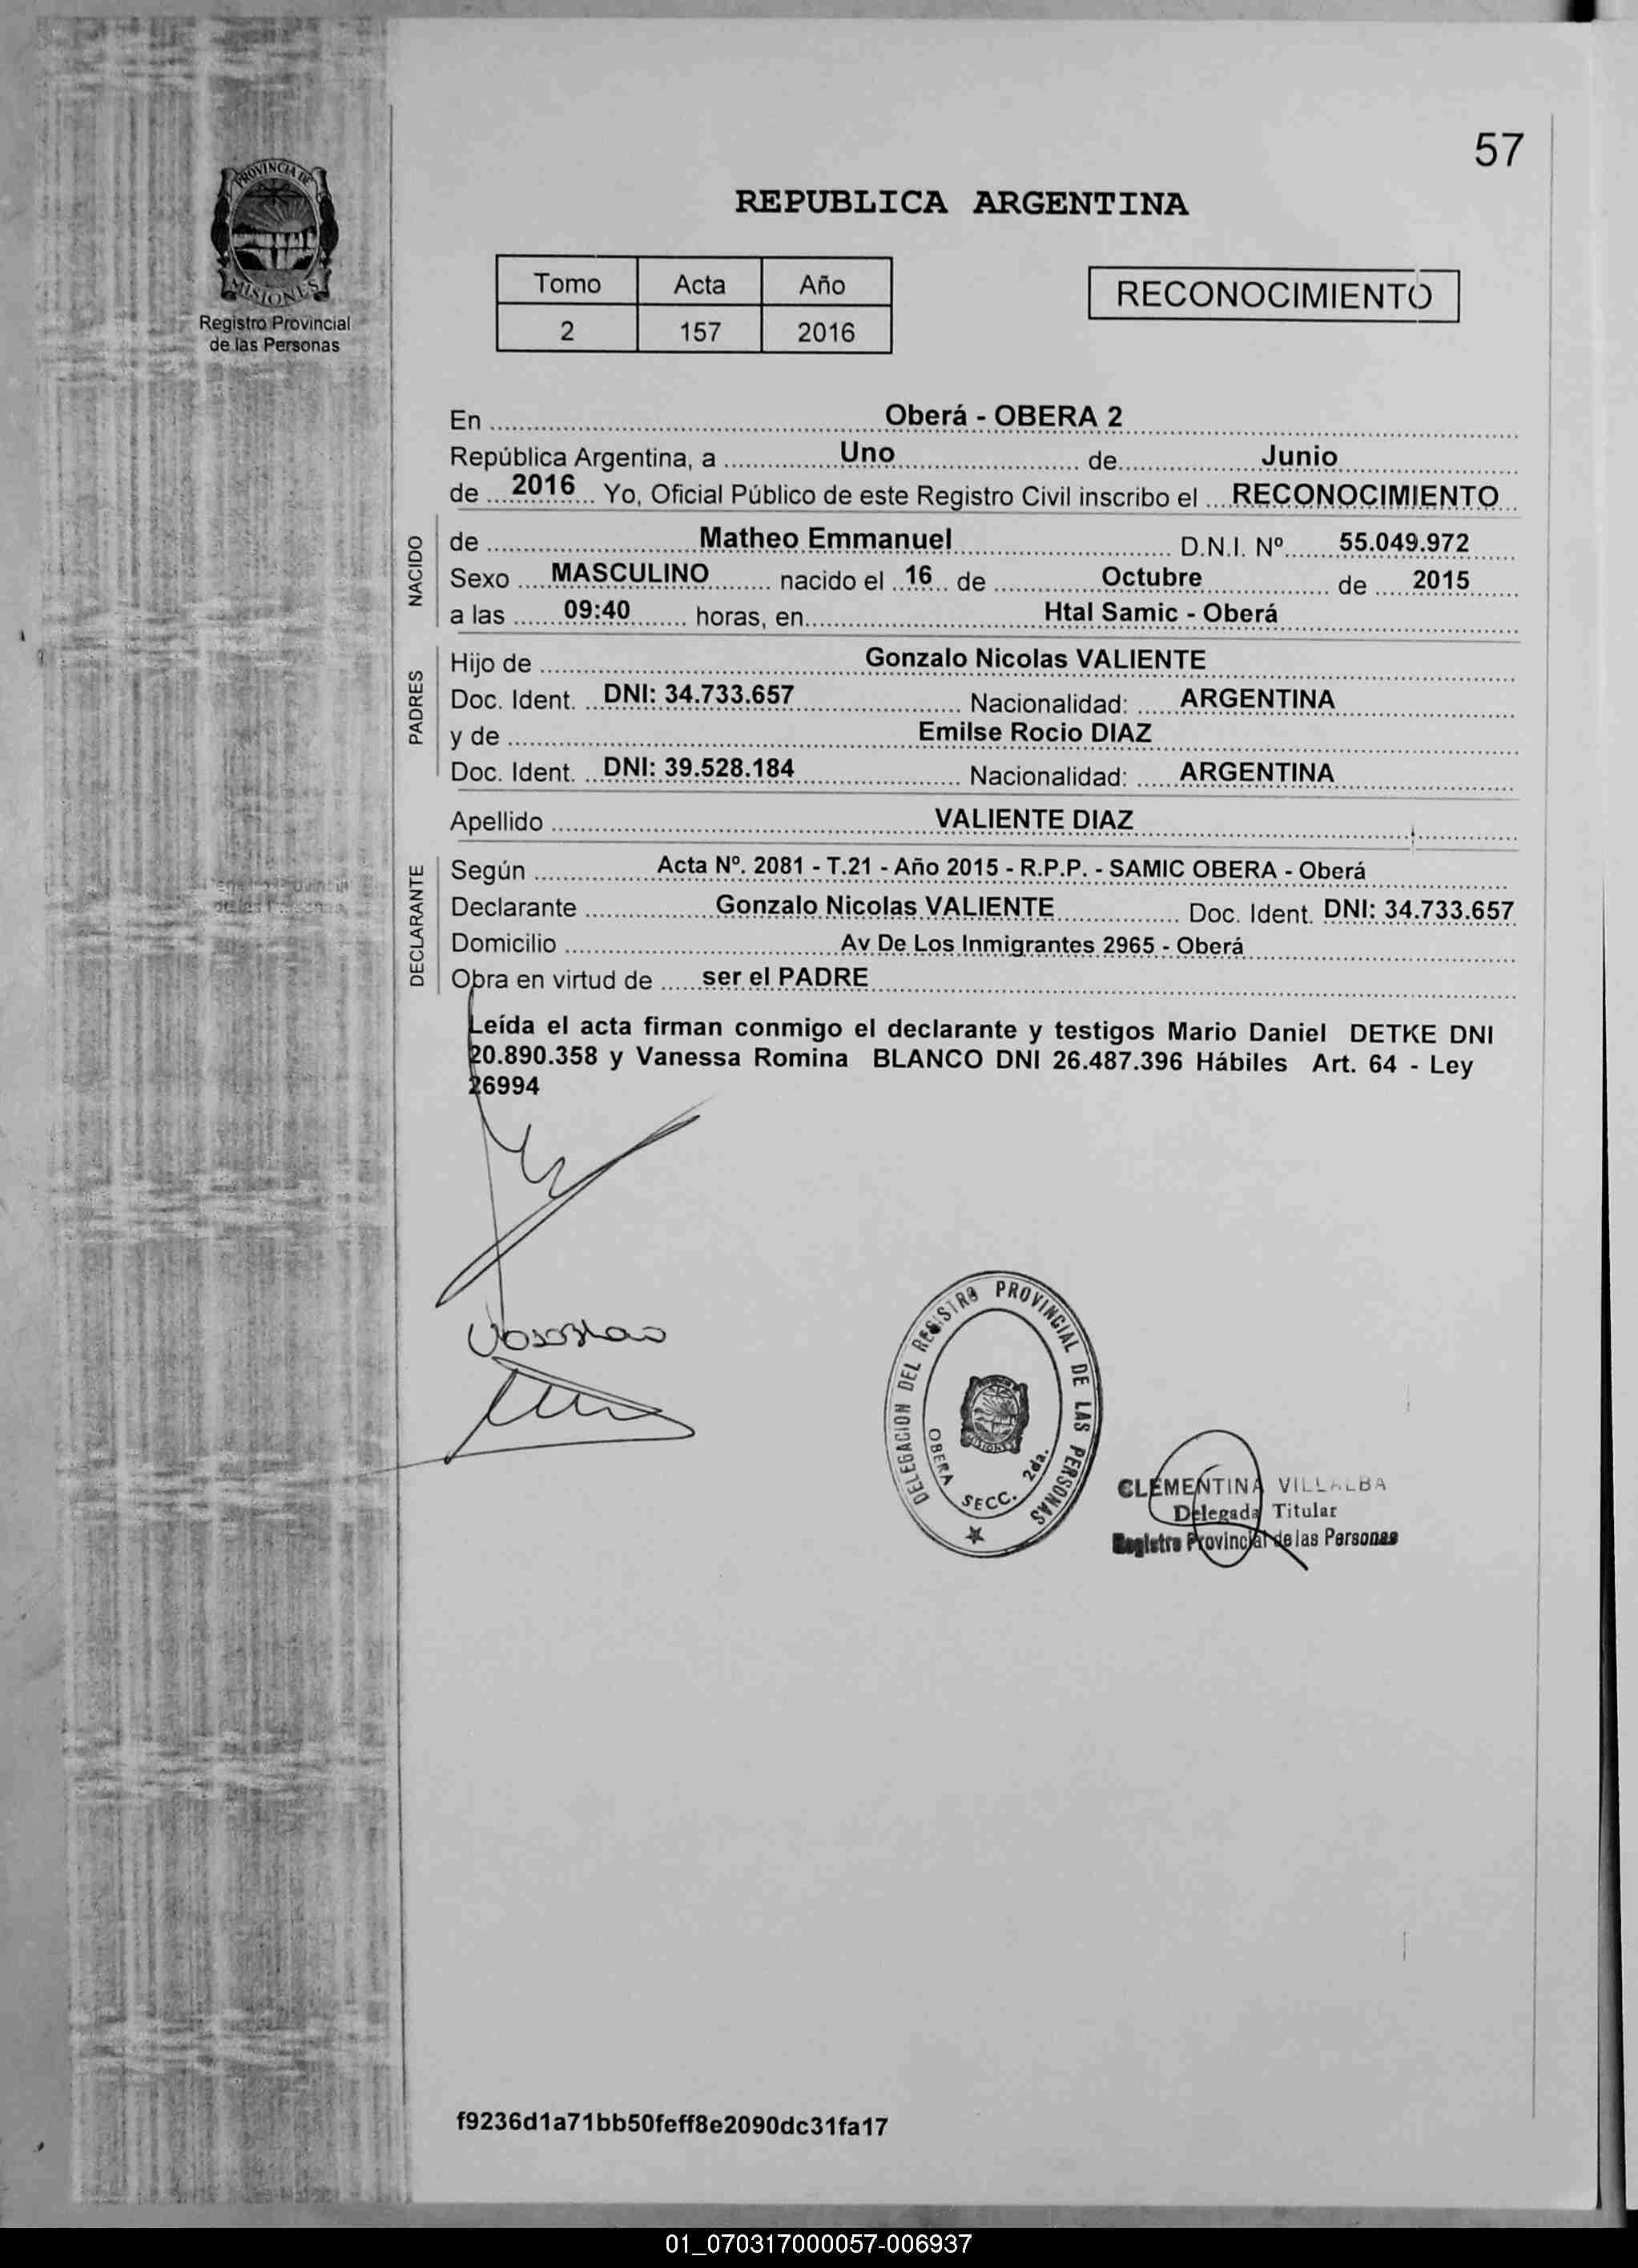 57
PROVINCIA DE
MISIONES
Registro Provincial
de las Personas
REPUBLICA ARGENTINA
Tomo Acta Año
2 157 2016
RECONOCIMIENTO
En Oberá - OBERA 2
República Argentina, a Uno de Junio
de 2016 Yo, Oficial Público de este Registro Civil inscribo el RECONOCIMIENTO
NACIDO
de Matheo Emmanuel D.N.I. Nº 55.049.972
Sexo MASCULINO nacido el 16 de Octubre de 2015
a las 09:40 horas, en Htal Samic - Oberá
PADRES
Hijo de Gonzalo Nicolas VALIENTE
Doc. Ident. DNI: 34.733.657 Nacionalidad: ARGENTINA
y de Emilse Rocio DIAZ
Doc. Ident. DNI: 39.528.184 Nacionalidad: ARGENTINA
Apellido VALIENTE DIAZ
DECLARANTE
Según Acta Nº. 2081 - T.21 - Año 2015 - R.P.P. - SAMIC OBERA - Oberá
Declarante Gonzalo Nicolas VALIENTE Doc. Ident. DNI: 34.733.657
Domicilio Av De Los Inmigrantes 2965 - Oberá
Obra en virtud de ser el PADRE
Leída el acta firman conmigo el declarante y testigos Mario Daniel DETKE DNI
20.890.358 y Vanessa Romina BLANCO DNI 26.487.396 Hábiles Art. 64 - Ley
26994
DELEGACION DEL REGISTRO PROVINCIAL DE LAS PERSONAS
OBERA SECC. 2da.
MISIONES
CLEMENTINA VILLALBA
Delegada Titular
Registro Provincial de las Personas
f9236d1a71bb50feff8e2090dc31fa17
01_070317000057-006937